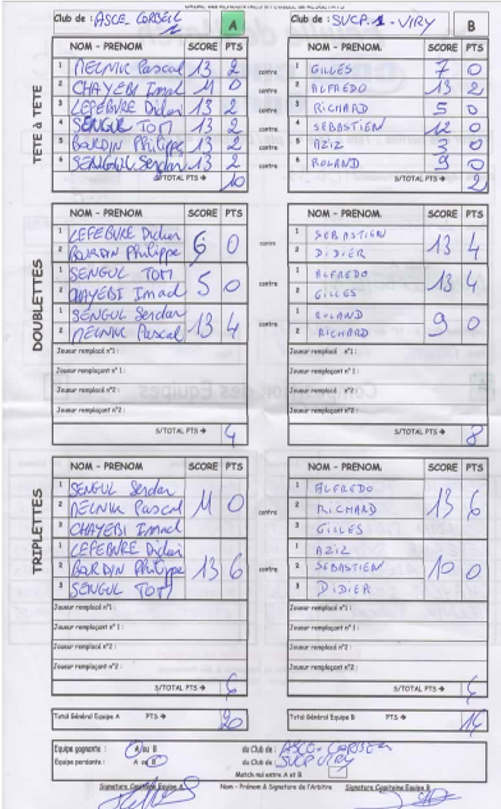 Club de : ASCE CORBEIL A
Club de : SUCP.1-VIRY B
TETE à TETE
NOM - PRENOM SCORE PTS NOM - PRENOM SCORE PTS
1 MELNIK Pascal 13 2 contre 1 GILLES 7 0
2 CHAYEBI Imad 11 0 contre 2 ALFREDO 13 2
3 LEFEBURE Didier 13 2 contre 3 RICHARD 5 0
4 SENGUL TOM 13 2 contre 4 SEBASTIEN 12 0
5 BOURDIN Philippe 13 2 contre 5 AZIZ 3 0
6 SENGUL Serdar 13 2 contre 6 ROLAND 9 0
S/TOTAL PTS → 10 S/TOTAL PTS → 2
DOUBLETTES
NOM - PRENOM SCORE PTS NOM - PRENOM SCORE PTS
1 LEFEBURE Didier 6 0 contre 1 SEBASTIEN 13 4
2 BOURDIN Philippe 2 DIDIER
1 SENGUL TOM 5 0 contre 1 ALFREDO 13 4
2 CHAYEBI Imad 2 GILLES
1 SENGUL Serdar 13 4 contre 1 ROLAND 9 0
2 MELNIK Pascal 2 RICHARD
Joueur remplacé n°1 : Joueur remplacé n°1 :
Joueur remplaçant n°1 : Joueur remplaçant n°1 :
Joueur remplacé n°2 : Joueur remplacé n°2 :
Joueur remplaçant n°2 : Joueur remplaçant n°2 :
S/TOTAL PTS → 4 S/TOTAL PTS → 8
TRIPLETTES
NOM - PRENOM SCORE PTS NOM - PRENOM SCORE PTS
1 SENGUL Serdar 11 0 contre 1 ALFREDO 13 6
2 MELNIK Pascal 2 RICHARD
3 CHAYEBI Imad 3 GILLES
1 LEFEBURE Didier 13 6 contre 1 AZIZ 10 0
2 BOURDIN Philippe 2 SEBASTIEN
3 SENGUL TOM 3 DIDIER
Joueur remplacé n°1 : Joueur remplacé n°1 :
Joueur remplaçant n°1 : Joueur remplaçant n°1 :
Joueur remplacé n°2 : Joueur remplacé n°2 :
Joueur remplaçant n°2 : Joueur remplaçant n°2 :
S/TOTAL PTS → 6 S/TOTAL PTS → 6
Total Général Equipe A PTS → 20 Total Général Equipe B PTS →
Equipe gagnante : A ou B du Club de : ASCE-CORBEIL
Equipe perdante : A ou B du Club de : SUCP VIRY
Match nul entre A et B
Signature Capitaine Equipe A Nom - Prénom & Signature de l'Arbitre Signature Capitaine Equipe B